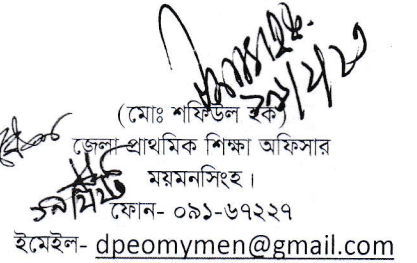 (মোঃ শফিউল হক)
জেলা প্রাথমিক শিক্ষা অফিসার
ময়মনসিংহ।
ফোন- ০৯১-৬৭২২৭
ইমেইল- dpeomymen@gmail.com